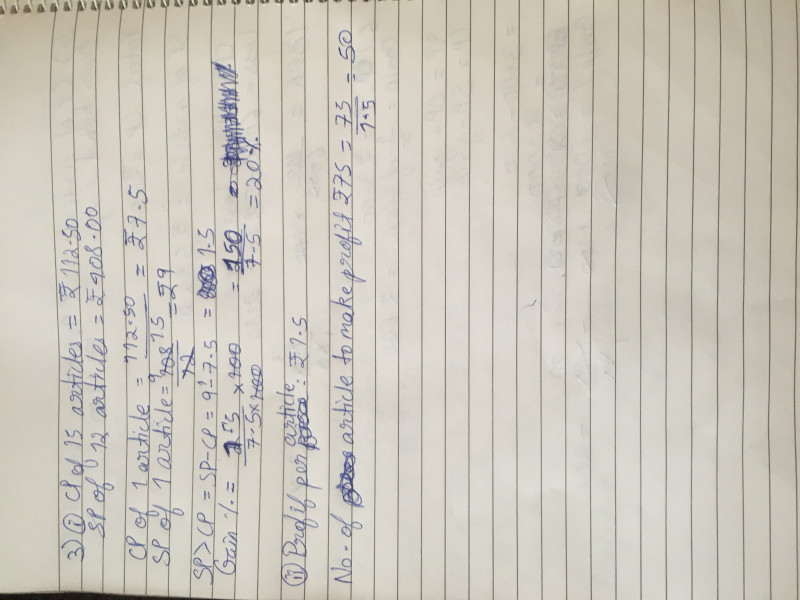 3) (i) CP of 15 articles = ₹ 112.50
SP of 12 articles = ₹ 108.00
CP of 1 article = 112.50 / 15 = ₹ 7.5
SP of 1 article = 108 / 12 = ₹ 9
SP > CP = SP - CP = 9 - 7.5 = 1.5
Gain % = 1.5 / 7.5 × 100 = 150 / 7.5 = 20%
(ii) Profit per article : ₹ 1.5
No. of article to make profit ₹ 75 = 75 / 1.5 = 50